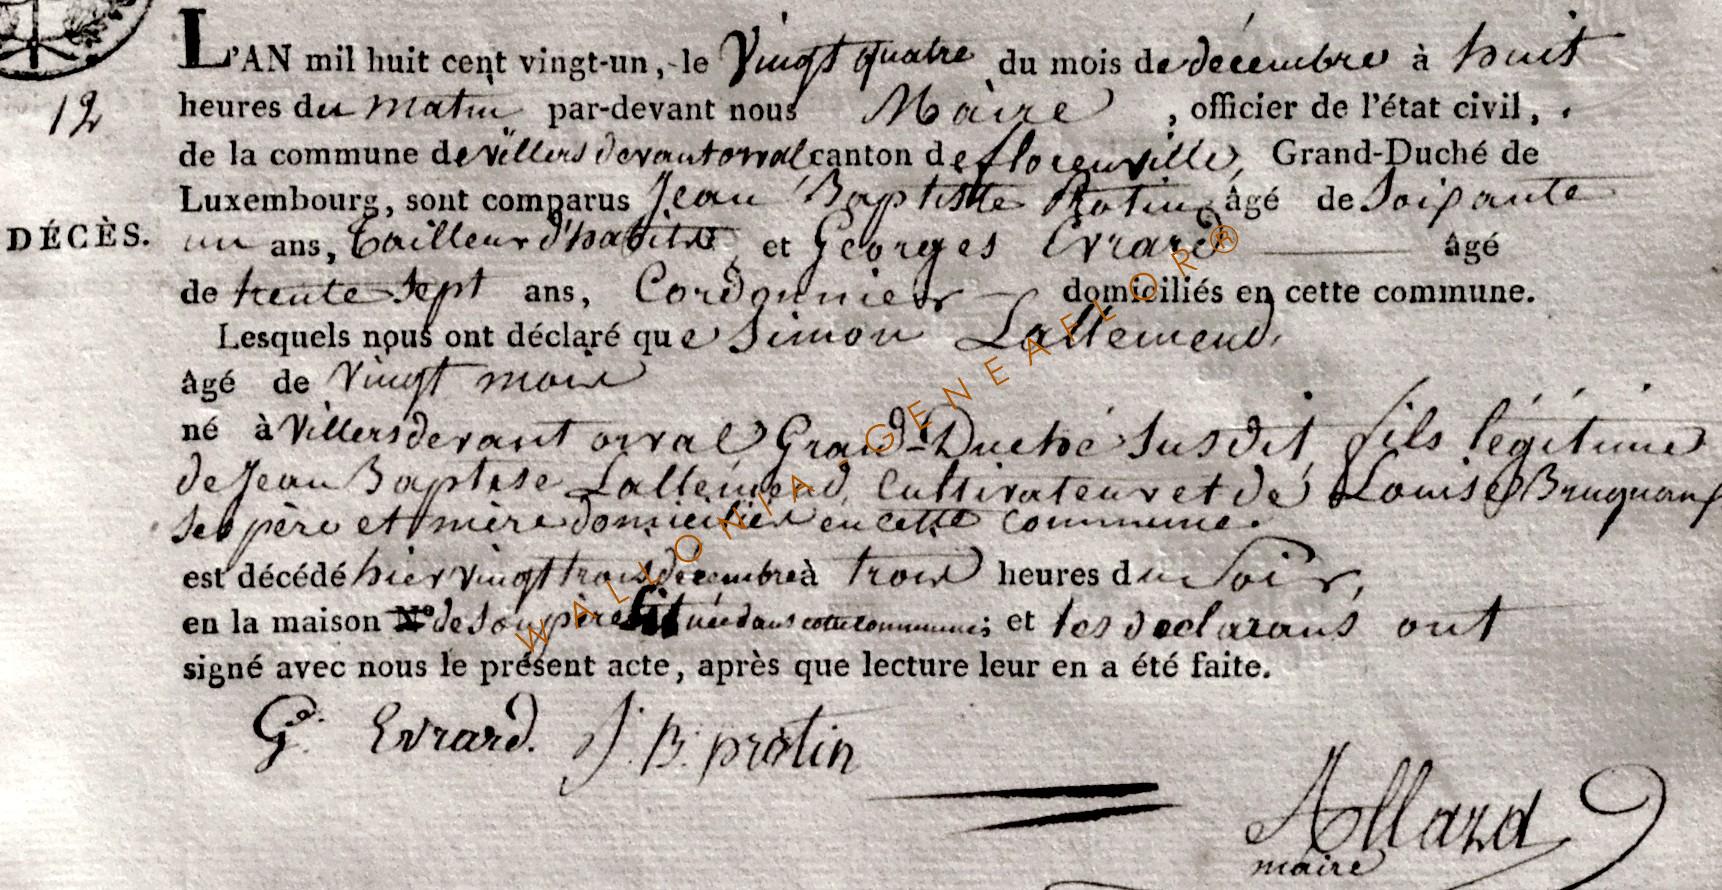 L'AN mil huit cent vingt-un, le Vingt quatre du mois de décembre à huit
12
heures du matin par-devant nous Maire, officier de l'état civil,
de la commune de villers devant orval canton de florenville, Grand-Duché de
Luxembourg, sont comparus Jean Baptiste Protin âgé de Soixante
DÉCÈS.
un ans, Tailleur d'habits, et Georges Evrard âgé
de trente sept ans, Cordonnier domiciliés en cette commune.
Lesquels nous ont déclaré que Simon Lallemend,
âgé de Vingt mois
né à Villers devant orval Grand-Duché Susdit, fils légitime
de Jean Baptise Lallemend, Cultivateur et de Louise
ses père et mère domiciliés en cette commune.
est décédé hier vingt trois décembre à trois heures du Soir,
en la maison N° de son père située dans cette commune; et les déclarans ont
signé avec nous le présent acte, après que lecture leur en a été faite.
G. Evrard. J. B. protin
Allard
maire
WALLONIA-GENEAFLOR®